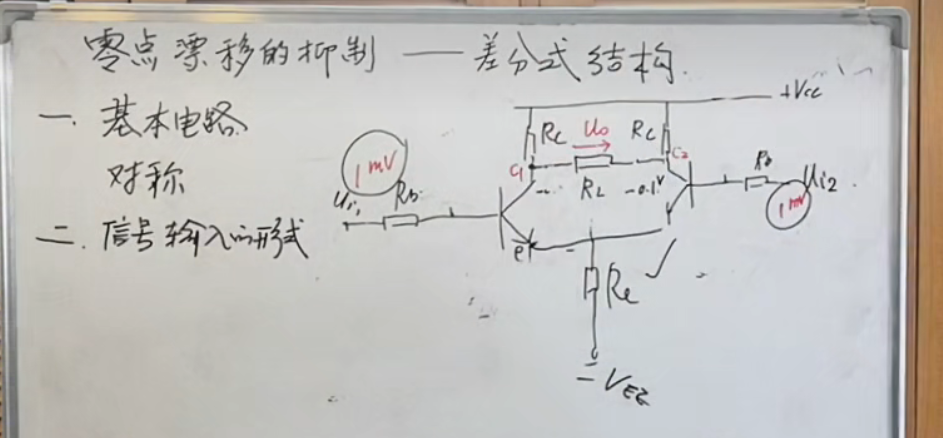 零点漂移的抑制 —— 差分式结构
一. 基本电路
对称
二. 信号输入的形式
+Vcc
Rc
Uo
Rc
C1
RL
C2
-0.1V
1mV
Ui1
Rb
Rb
Ui2
1mV
e
Re
-VEE